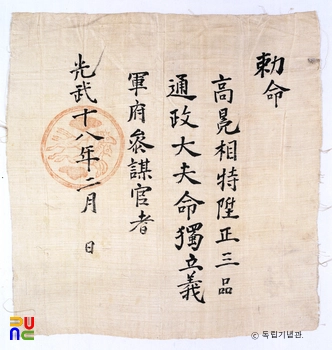 勅命
高晃相特陞正三品
通政大夫命獨立義
軍府叅謀官者
光武十八年二月 日
© 독립기념관